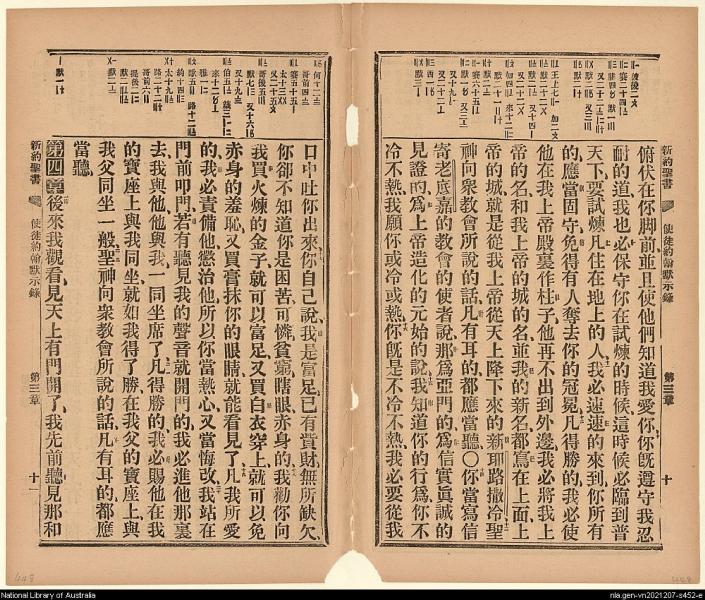 新約聖書
使徒約翰默示錄
第三章
十
俯伏在你脚前並且使他們知道我愛你你旣遵守我忍
耐的道我也必保守你在試煉的時候這時候必臨到普
天下要試煉凡住在地上的人我必速速的來到你所有
的應當固守免得有人奪去你的冠冕凡得勝的我必使
他在我上帝殿裏作柱子他再不出到外邊我必將我上
帝的名和我上帝的城的名並我的新名都寫在上面上
帝的城就是從我上帝從天上降下來的新耶路撒冷聖
神向衆教會所說的話凡有耳的都應當聽〇你當寫信
寄老底嘉的教會的使者說那爲亞門的爲信實眞誠的
見證的爲上帝造化的元始的說我知道你的行爲你不
冷不熱我願你或冷或熱你旣是不冷不熱我必要從我
新約聖書
使徒約翰默示錄
第三章
十一
口中吐你出來你自己說我是富足已有貲財無所缺欠
你卻不知道你是困苦可憐貧窮瞎眼赤身的我勸你向
我買火煉的金子就可以富足又買白衣穿上就可以免
赤身的羞恥又買膏抹你的眼睛就能看見了凡我所愛
的我必責備他懲治他所以你當熱心又當悔改我站在
門前叩門若有聽見我的聲音就開門的我必進他那裏
去我與他他與我一同坐席了凡得勝的我必賜他在我
的寶座上與我同坐就如我得了勝在我父的寶座上與
我父同坐一般聖神向衆教會所說的話凡有耳的都應
當聽
第四章後來我觀看見天上有門開了我先前聽見那和
448
National Library of Australia
nla.gen-vn2021207-s452-e